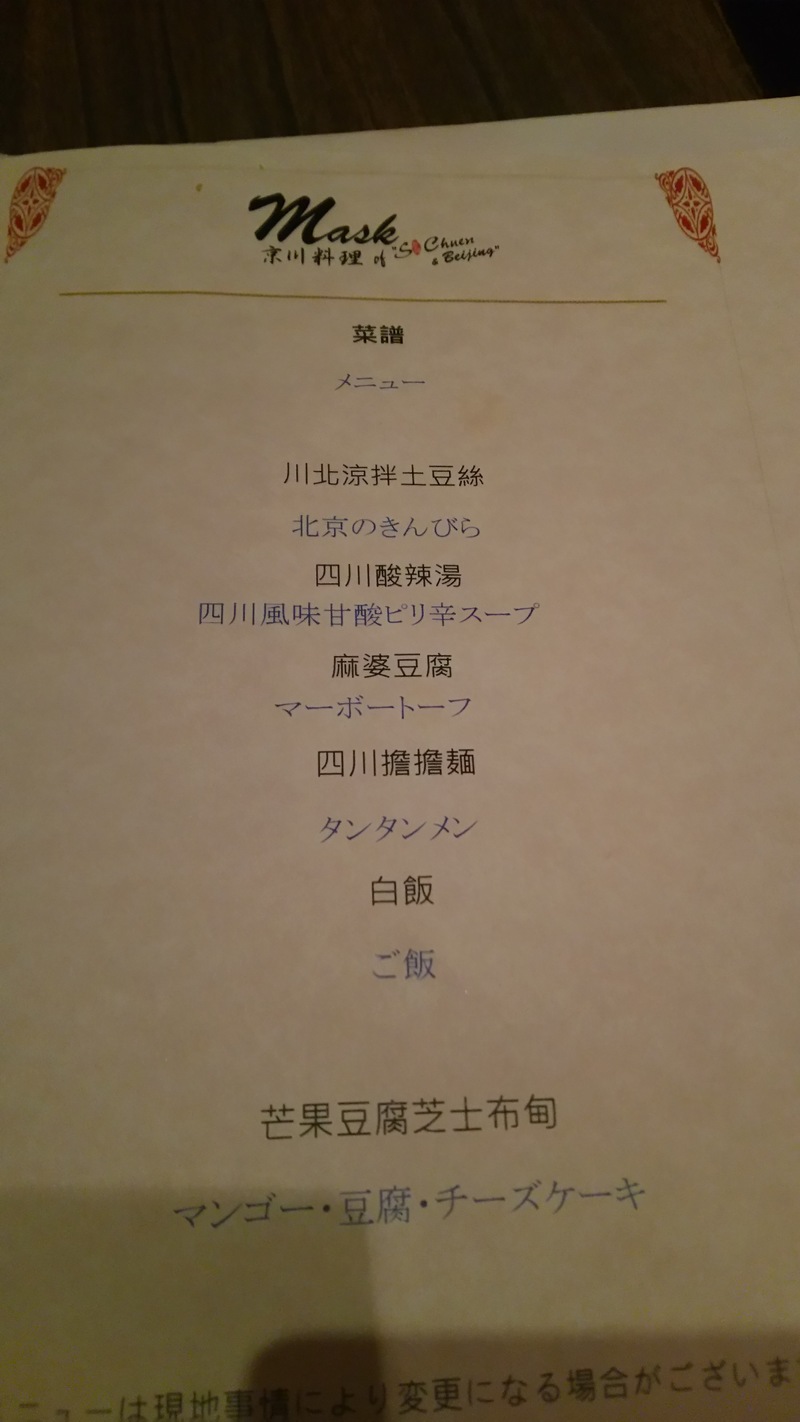 Mask
京川料理 of "Si Chuen
& Beijing"
菜譜
メニュー
川北涼拌土豆絲
北京のきんぴら
四川酸辣湯
四川風味甘酸ピリ辛スープ
麻婆豆腐
マーボートーフ
四川擔擔麺
タンタンメン
白飯
ご飯
芒果豆腐芝士布甸
マンゴー・豆腐・チーズケーキ
ニューは現地事情により変更になる場合がございま